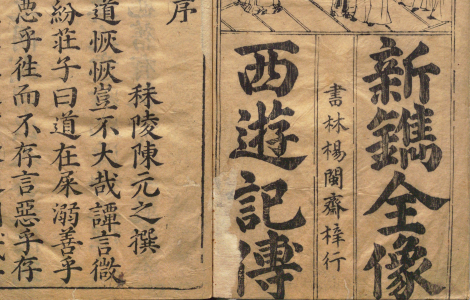 新鐫全像
書林楊閩齋梓行
西遊記傳
序
秣陵陳元之撰
道恢恢豈不大哉譚言微
紛荘子曰道在屎溺善乎
惡乎往而不存言惡乎存